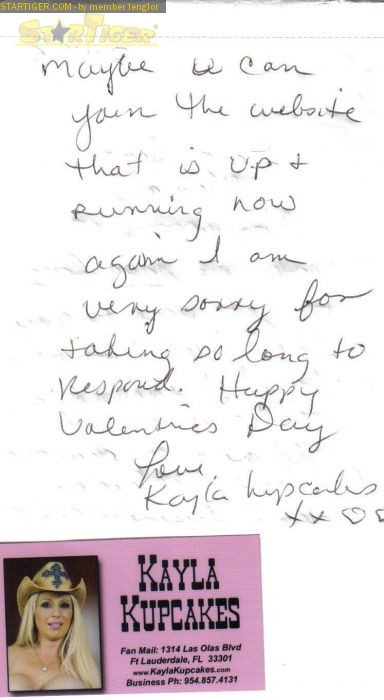 STARTIGER.COM - by member lenglor
STARTIGER
maybe u can
join the website
that is up &
running now
again I am
very sorry for
taking so long to
respond. Happy
Valentines Day
Love,
Kayla Kupcakes
xx ♡♡
KAYLA
KUPCAKES
Fan Mail: 1314 Las Olas Blvd
Ft Lauderdale, FL 33301
www.KaylaKupcakes.com
Business Ph: 954.857.4131